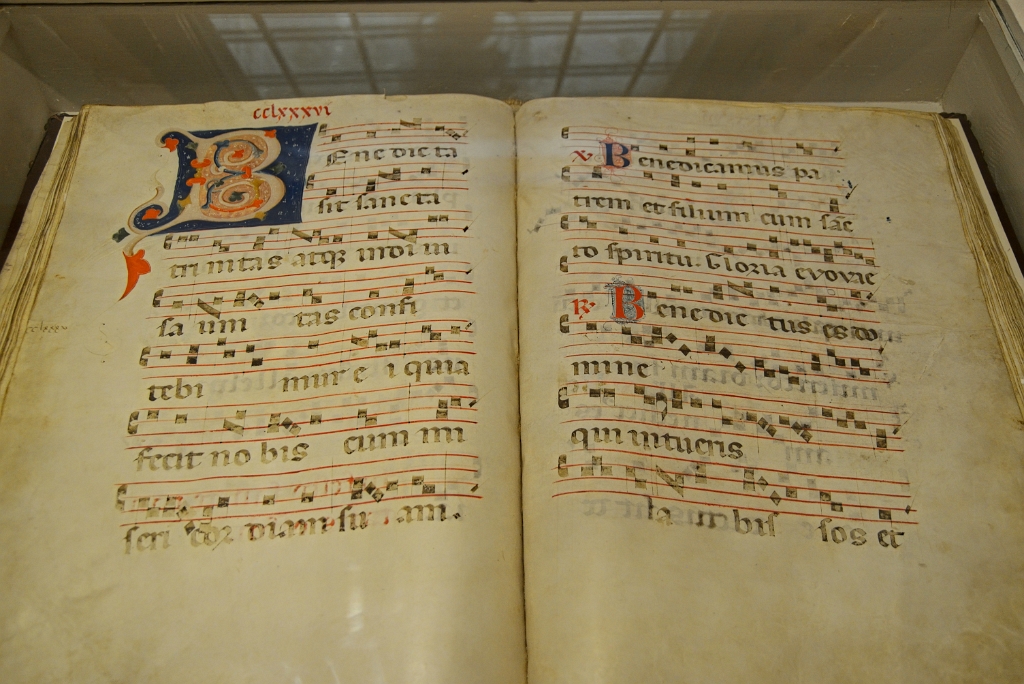 cclxxxvi
BEnedicta
sit sancta
trinitas atqȝ indiui
sa uni tas confi
tebi mur e i quia
fecit nobis cum mi
seri cor diam su am.
V. Benedicamus pa
trem et filium cum sāc
to spiritu. Gloria evovae
R. Benedic tus es do
mine
qui intueris
a bis sos et